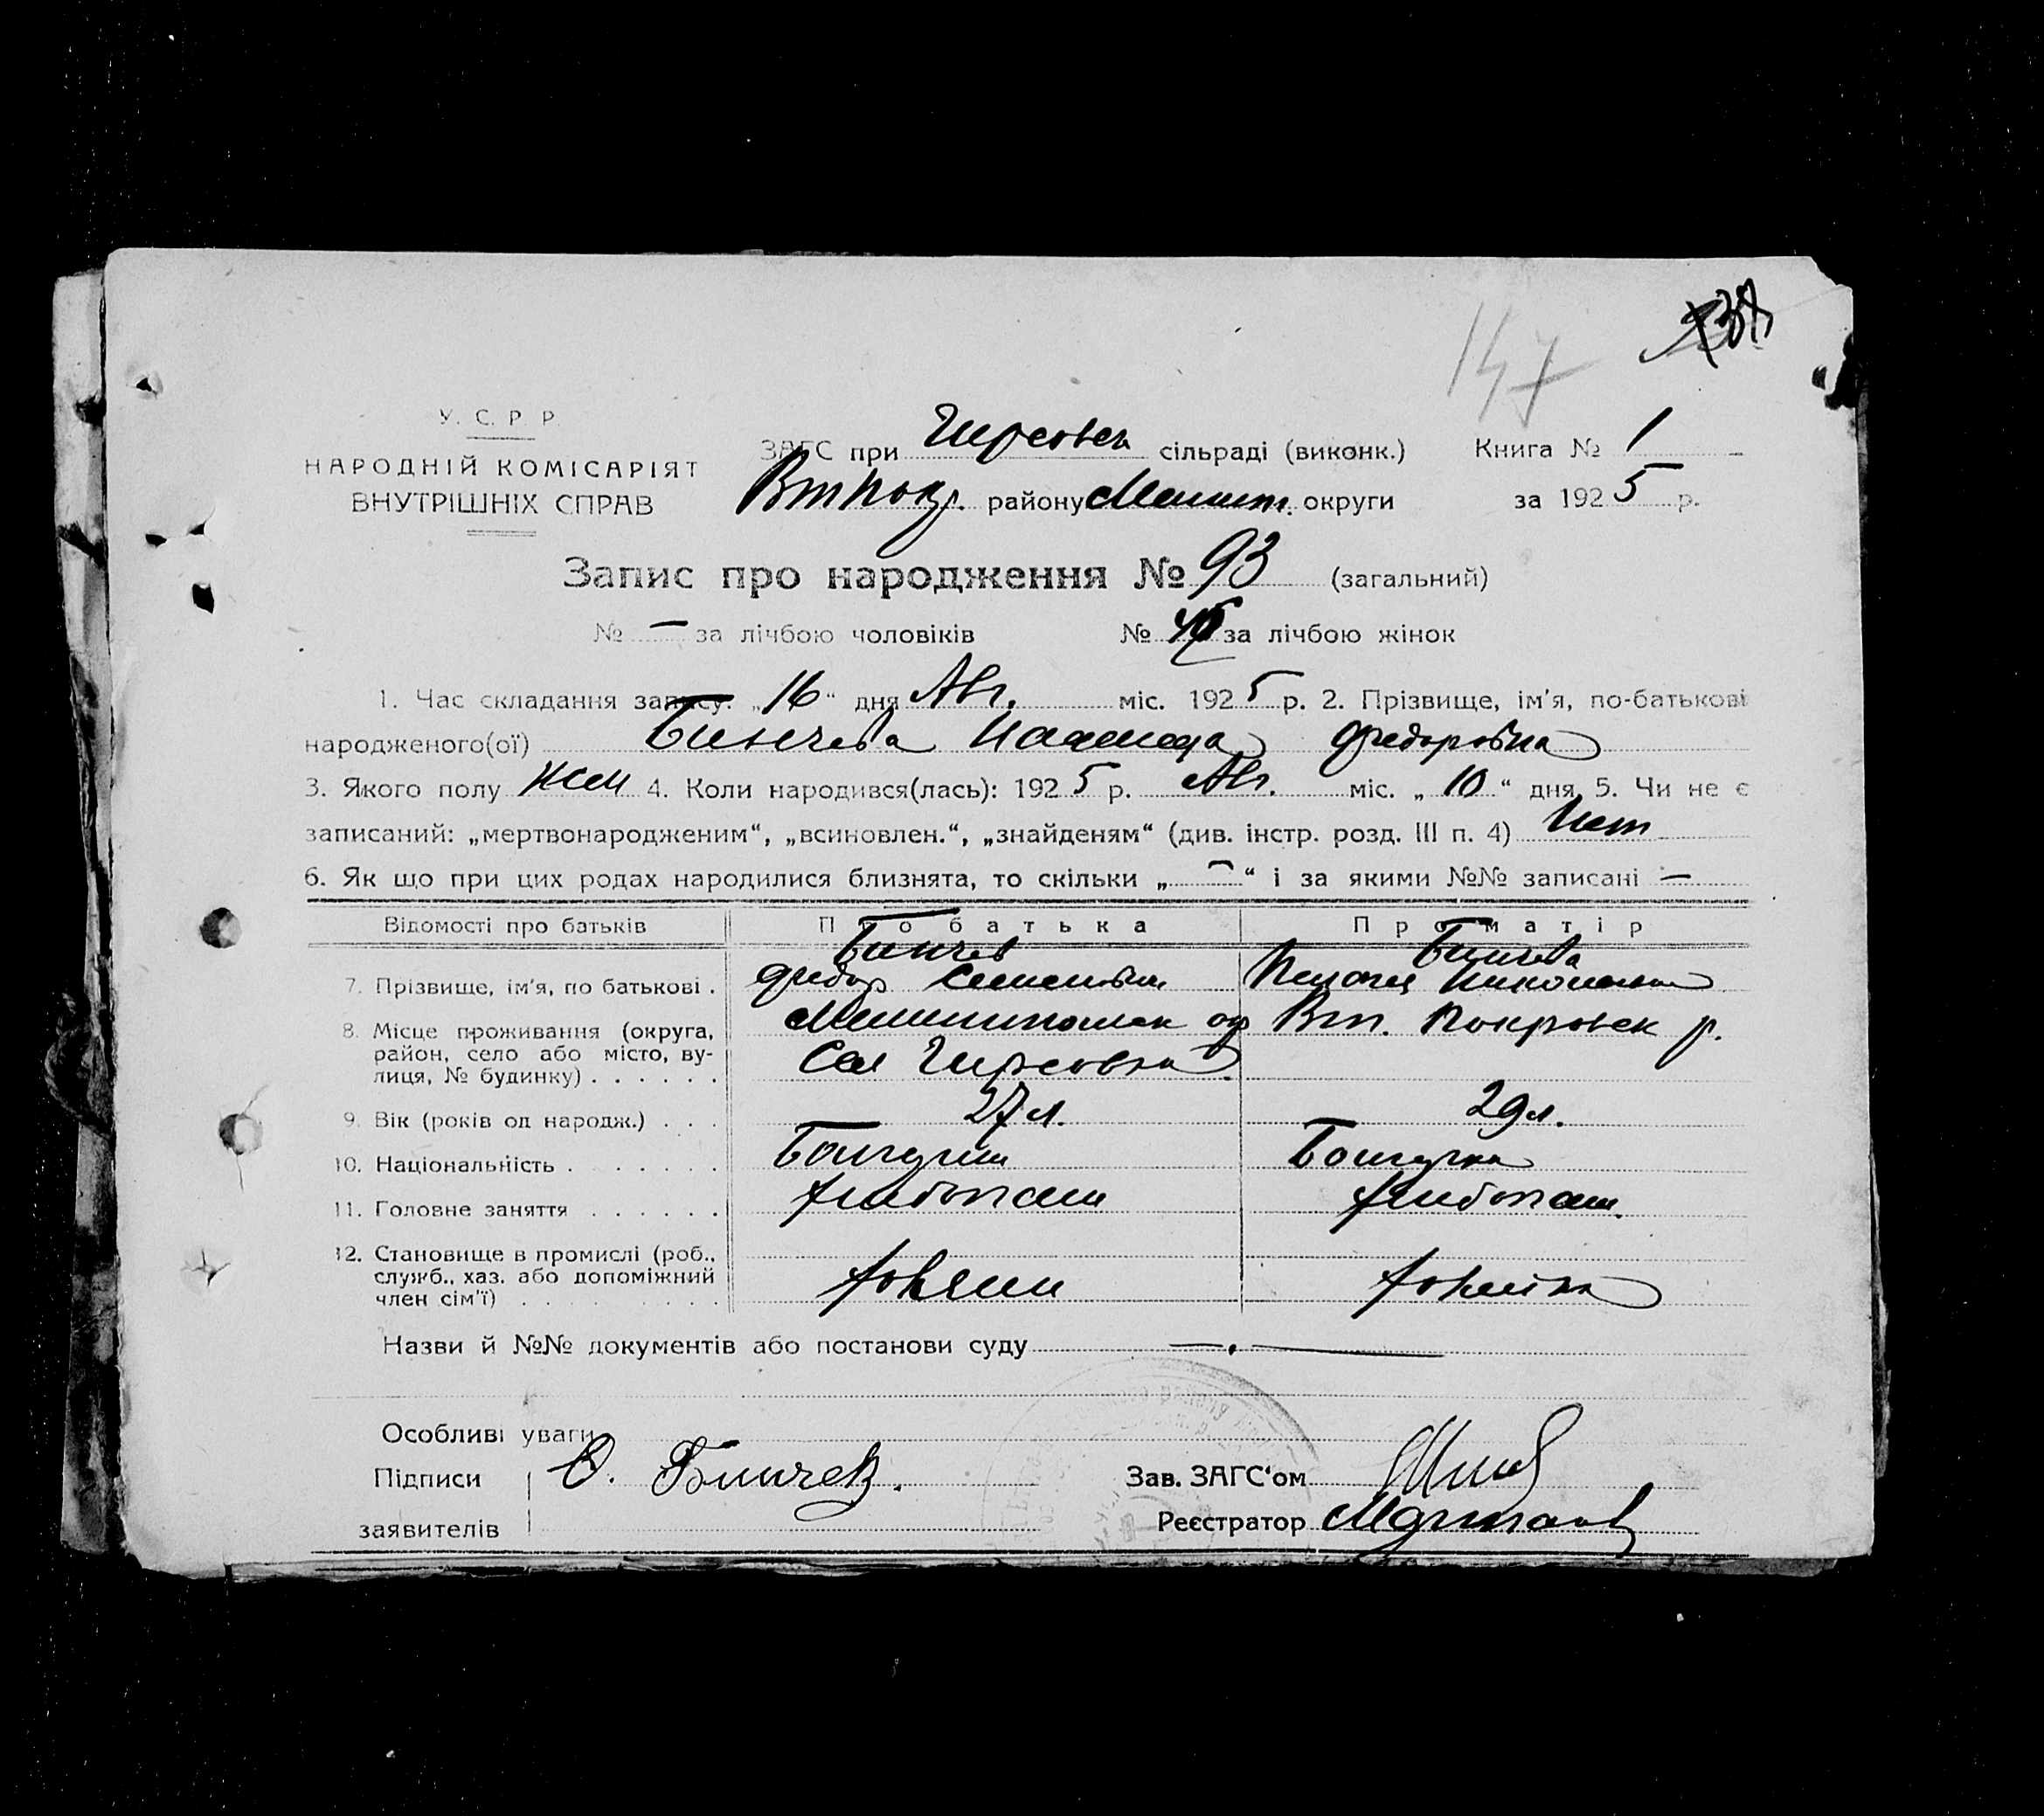 147
У. С. Р. Р.
НАРОДНІЙ КОМІСАРІЯТ
ВНУТРІШНІХ СПРАВ
ЗАГС при Гирсовск сільраді (виконк.) Книга № 1
Втпокр. району Мелит. округи за 1925 р.
Запис про народження № 93 (загальний)
№ — за лічбою чоловіків № за лічбою жінок
1. Час складання запису: „16“ дня Авг. міс. 1925 р. 2. Прізвище, ім'я, по-батькові
народженого(ої) Бинчева Надежда Федоровна
3. Якого полу жен 4. Коли народився(лась): 1925 р. Авг. міс. „10“ дня 5. Чи не є
записаний: „мертвонародженим“, „всиновлен.“, „знайденям“ (див. інстр. розд. III п. 4) Нет
6. Як що при цих родах народилися близнята, то скільки „—“ і за якими №№ записані —
Відомості про батьків Про батька Про матір
Бинчев Бинчева
7. Прізвище, ім'я, по батькові . Федор Семенович Николаевна
8. Місце проживання (округа, Мелитопольск ок Вт. Покровск р.
район, село або місто, ву-
лиця, № будинку) . . . . . . Сел Гирсовка
9. Вік (років од народж.) . . . 27 л. 29 л.
10. Національність . . . . . . . Болгарин Болгарка
11. Головне заняття . . . . . . хлебопаш хлебопаш.
12. Становище в промислі (роб.,
служб., хаз. або допоміжний хозяин хозяйка
член сім'ї) . . . . . . . .
Назви й №№ документів або постанови суду —.—
Особливі уваги
Підписи Ф. Бинчев. Зав. ЗАГС'ом
заявителів Реєстратор